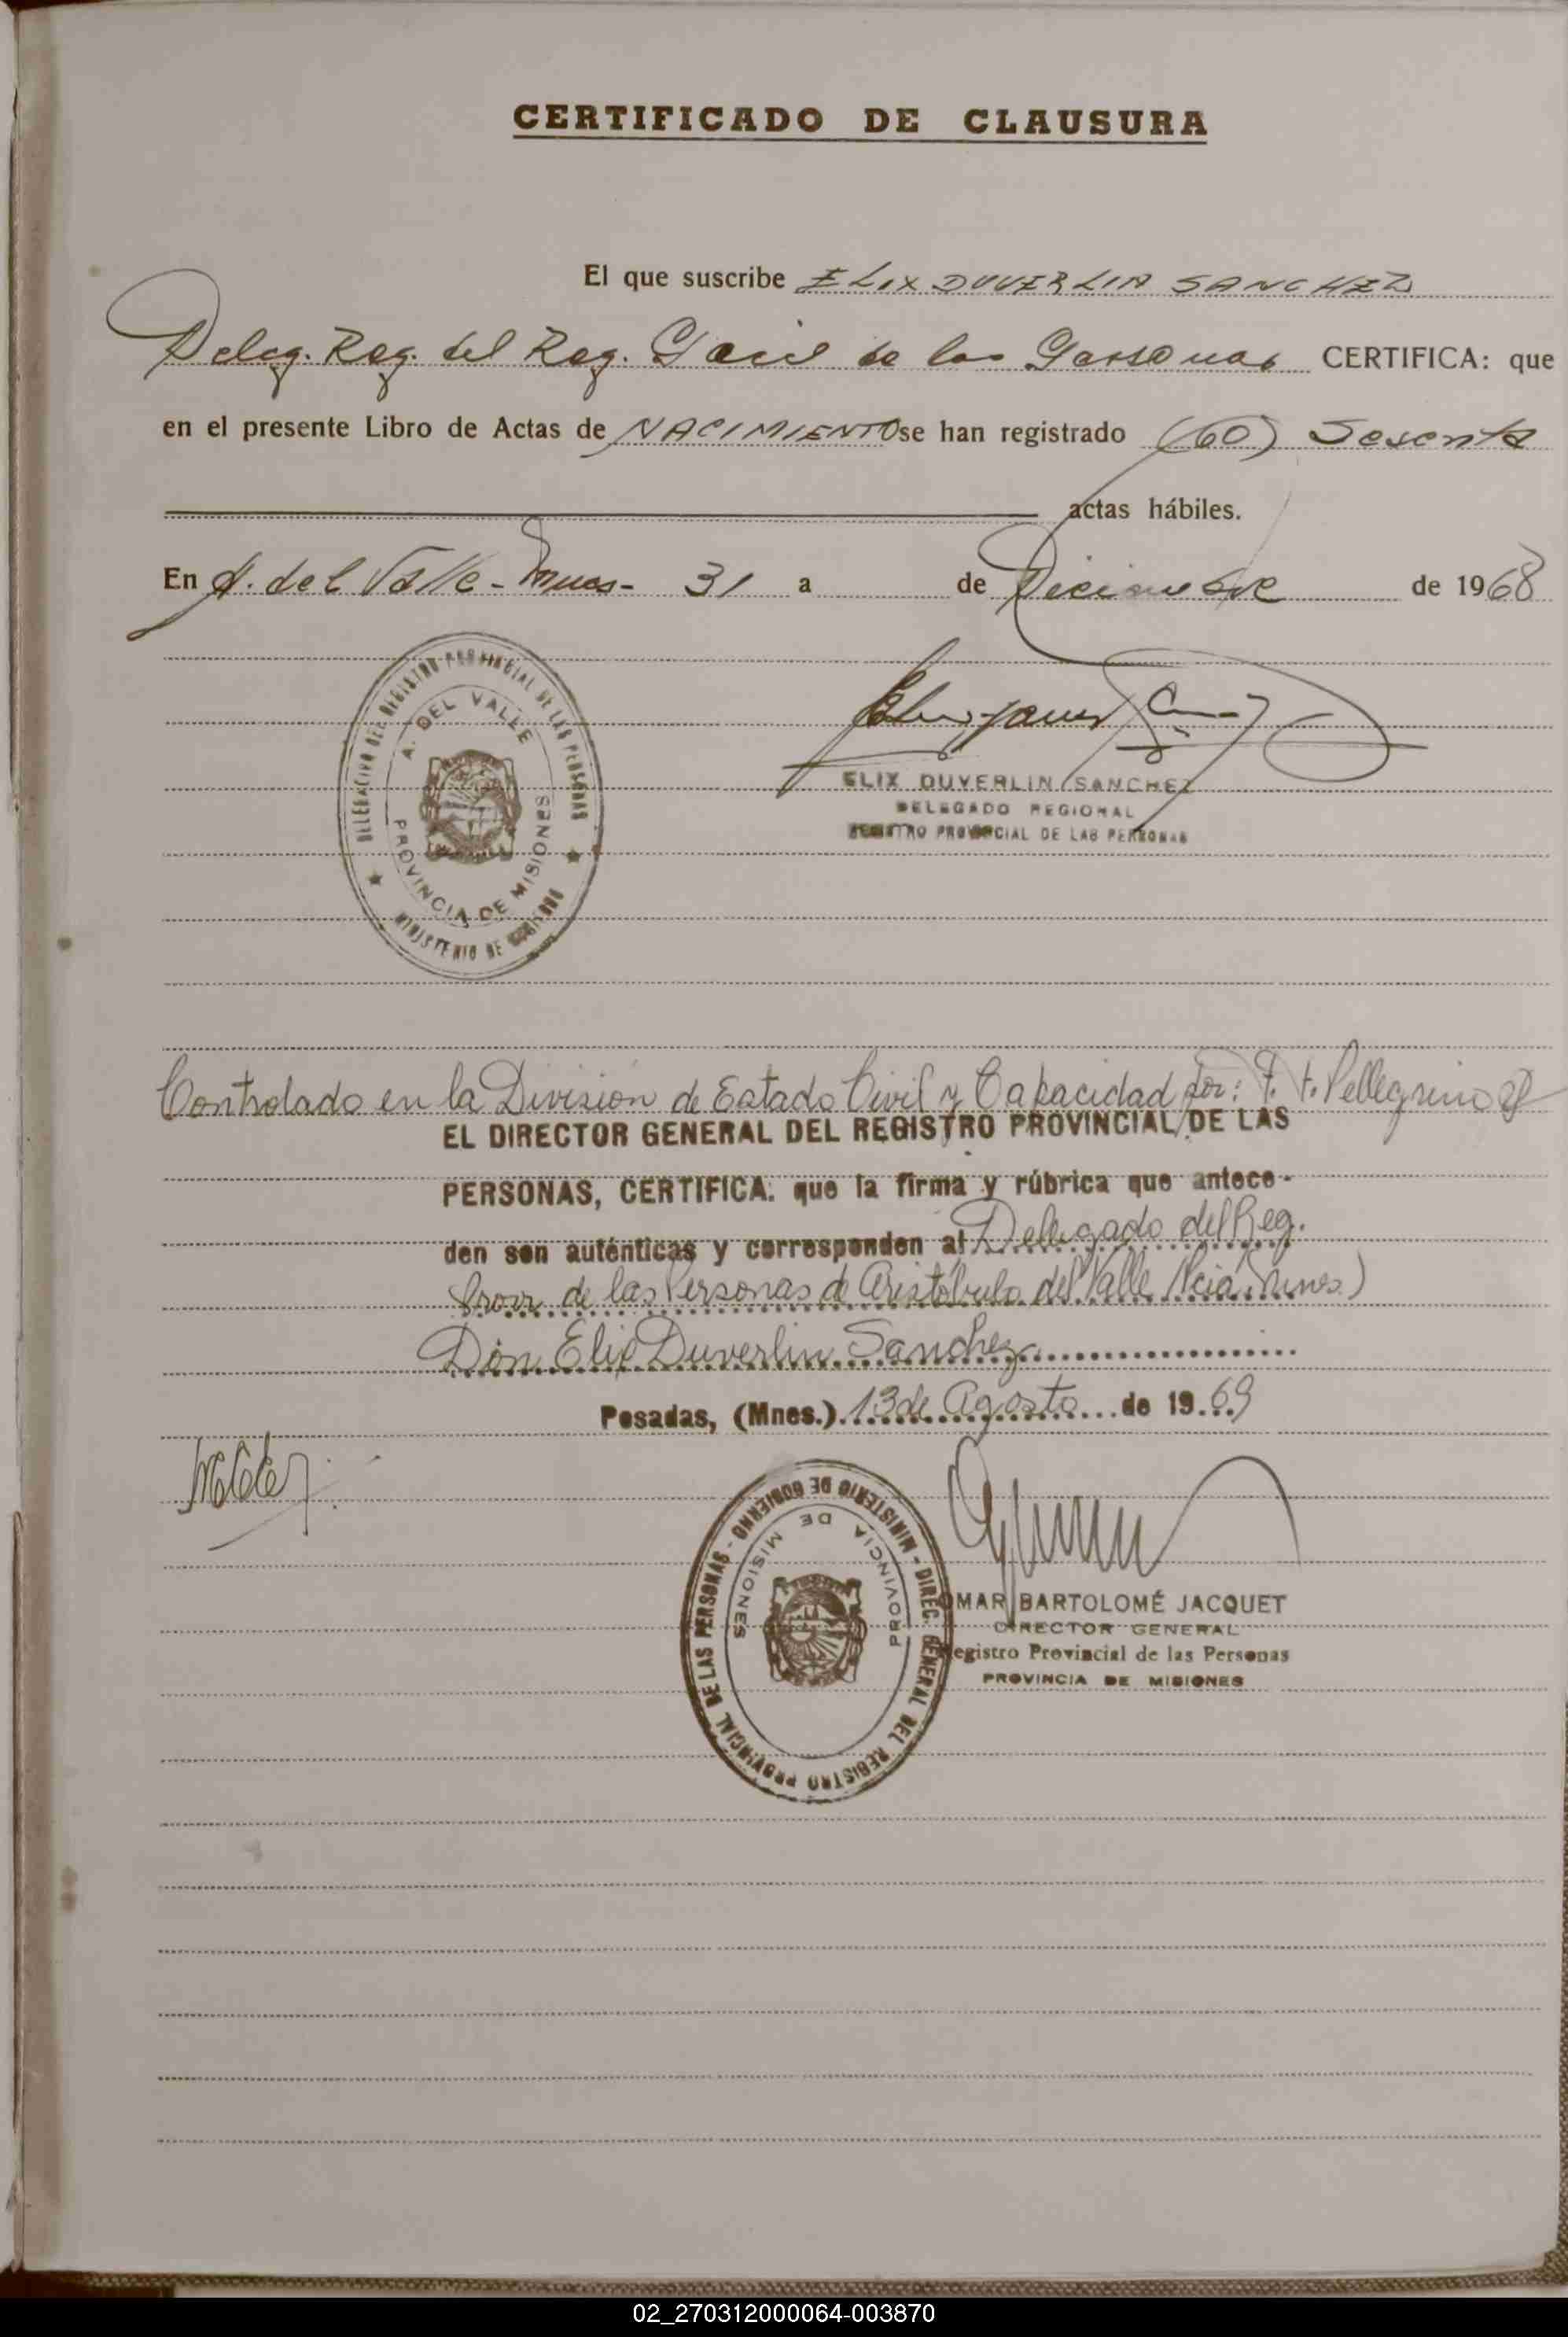 CERTIFICADO DE CLAUSURA
El que suscribe ELIX DUVERLIN SANCHEZ
Deleg. Reg. del Reg. de las CERTIFICA: que
en el presente Libro de Actas de NACIMIENTO se han registrado (60) Sesenta
actas hábiles.
En A. del Valle - Mnes - 31 a de Diciembre de 1968
DELEGACION DEL REGISTRO PROVINCIAL DE LAS PERSONAS
A. DEL VALLE
PROVINCIA DE MISIONES
MINISTERIO DE GOBIERNO
ELIX DUVERLIN SANCHEZ
DELEGADO REGIONAL
REGISTRO PROVINCIAL DE LAS PERSONAS
Controlado en la División de Estado Civil y Capacidad por: F. F. Pellegrino
EL DIRECTOR GENERAL DEL REGISTRO PROVINCIAL DE LAS
PERSONAS, CERTIFICA: que la firma y rúbrica que antece-
den son auténticas y corresponden al Delegado del Reg.
Prov. de las Personas de Aristóbulo del Valle (Pcia. Mnes.)
Don Elix Duverlin Sanchez
Posadas, (Mnes.) 13 de Agosto de 1969
MINISTERIO DE GOBIERNO - DIREC. GENERAL DEL REGISTRO PROVINCIAL DE LAS PERSONAS -
PROVINCIA DE MISIONES
OMAR BARTOLOMÉ JACQUET
DIRECTOR GENERAL
Registro Provincial de las Personas
PROVINCIA DE MISIONES
02_270312000064-003870